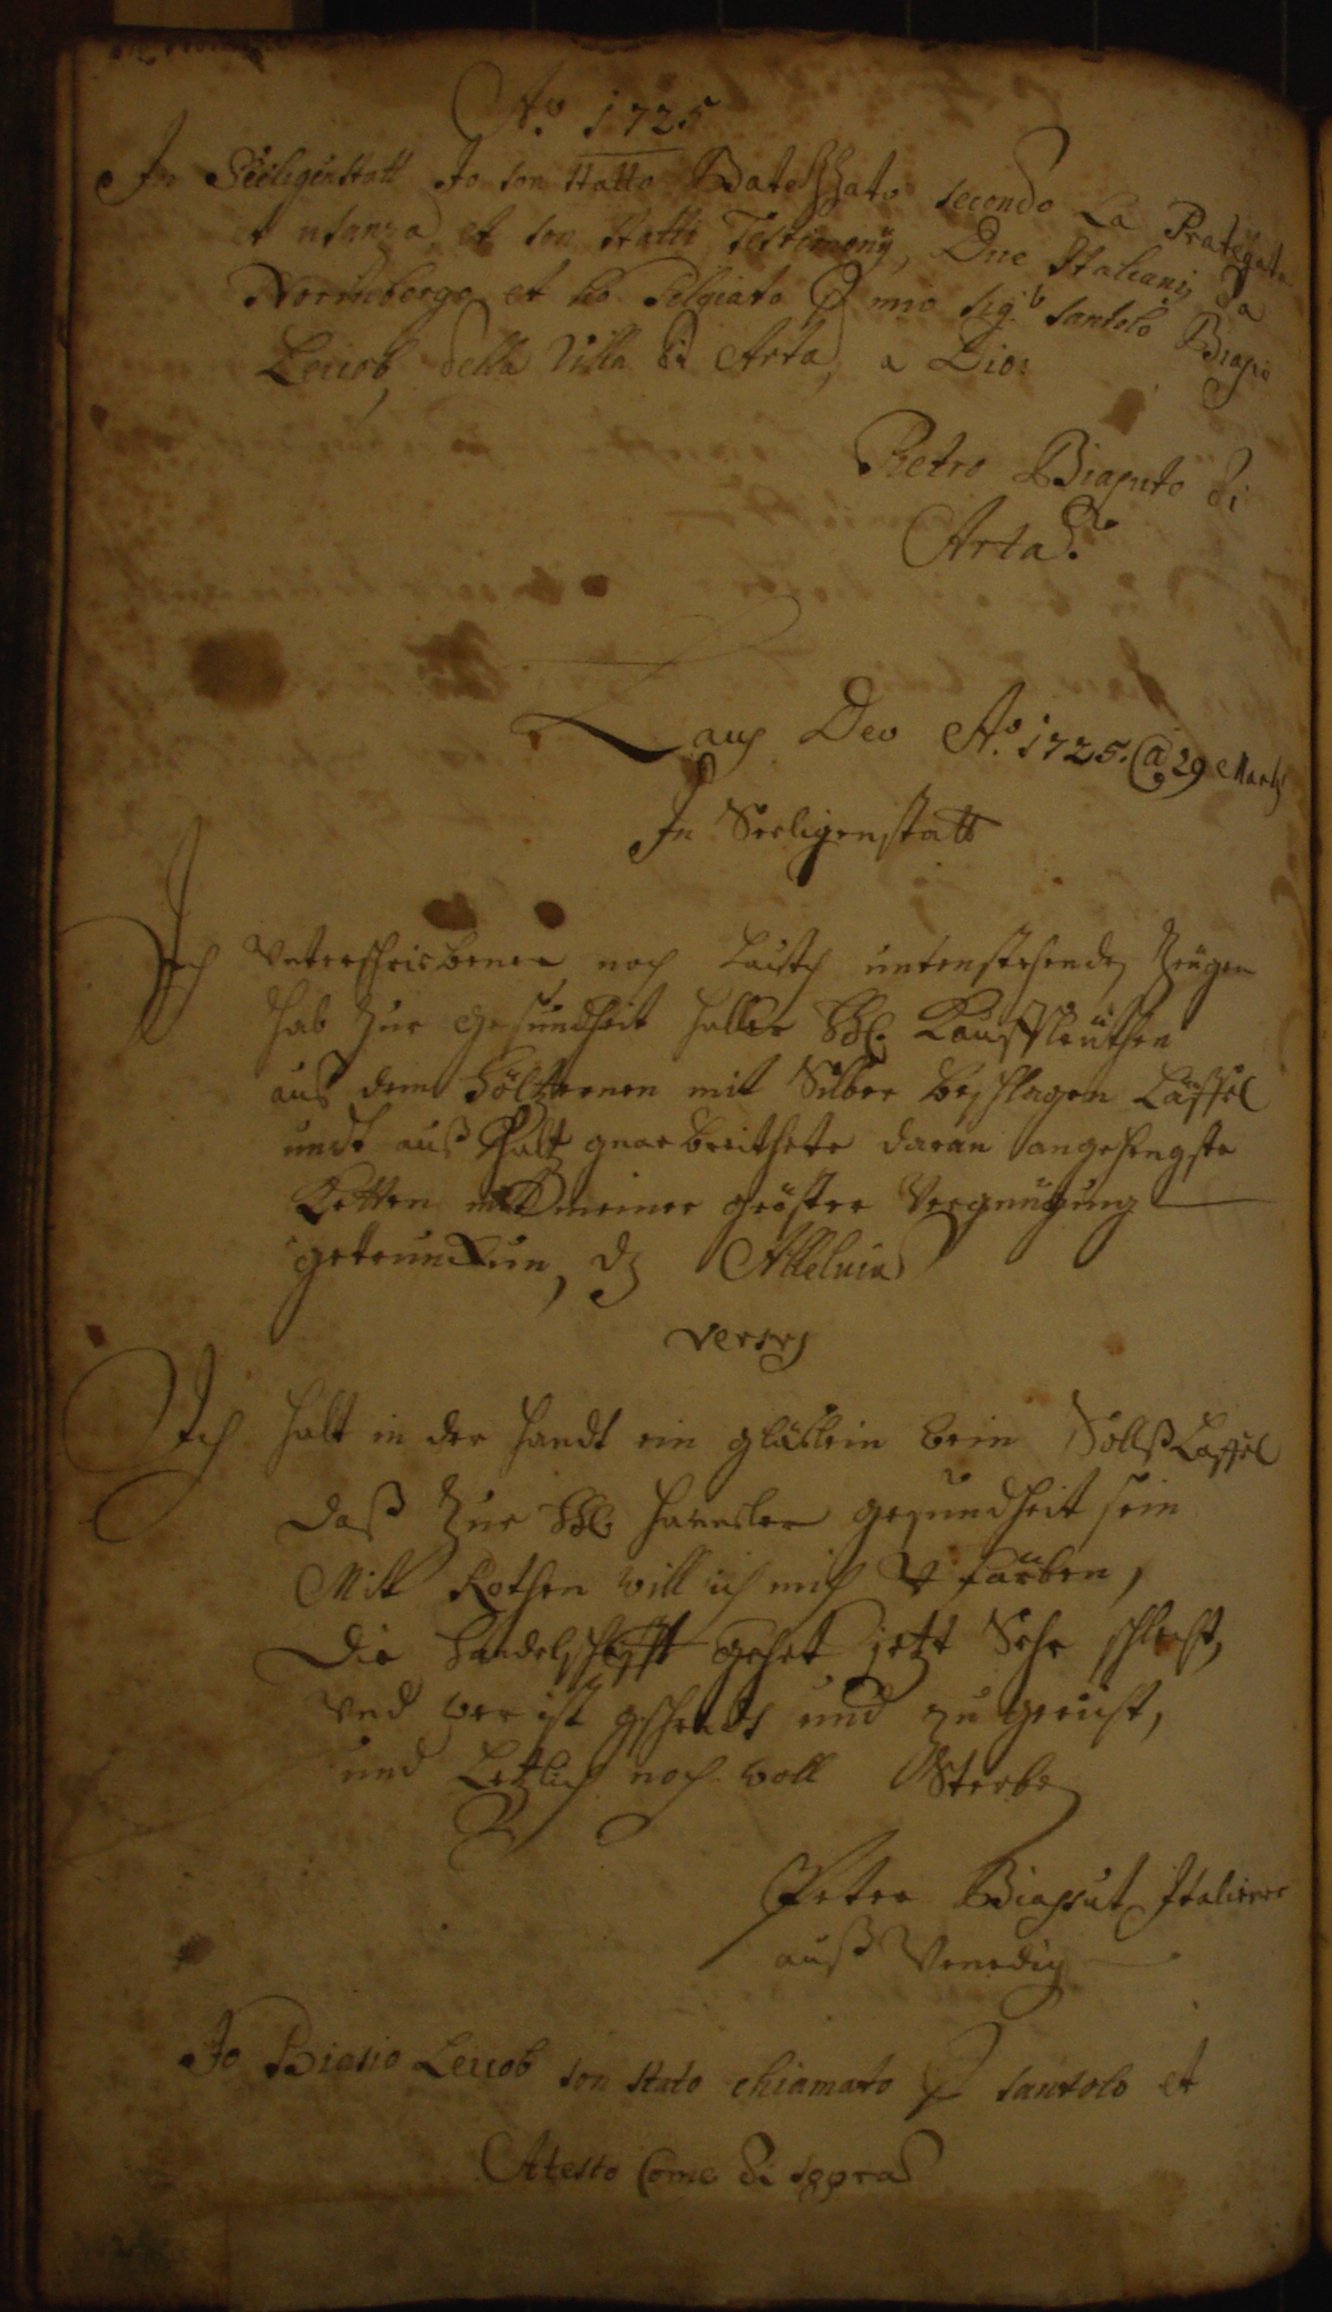 Aō. 1725
In Seeligenstatt Io son statto Batezzato secondo La Prategata
et usanza, et son statti Testimonÿ, Due Italiani, da
Norimbergo et ho Pilgiato P mio Sigr Santolo Biasio
Leucob, della Villa di Arta, a Dio:
Pietro Biasuto di
Arta.
Laus Deo Aō. 1725. @ 29 Martz
In Seeligenstatt
Ich Unterschriebener noch untenstehende Zeugen
hab Zur gesundheit haller Kauffleuthen
auß dem höltzernen mit Silber beschlagen Läffel
undt auß Holtz gearbeithete daran angehengste
Ketten mit meiner gröster Vergnügung
getruncken, dz Alleluia
Verses
Ich halt in der handt ein gläslein bein Sollß Laffel
Daß Zur gesundheit sein
Mitt Rothen will ich mich färben,
Die handelschafft gehet jetzt Sehr schlecht,
Und wer ist und zu gericht,
und Letzlich noch voll Sterben
Peter Biassut Italiener
auß Venedig
Io Biasio Leucob son stato chiamato P santolo et
Atesto Come di sopra